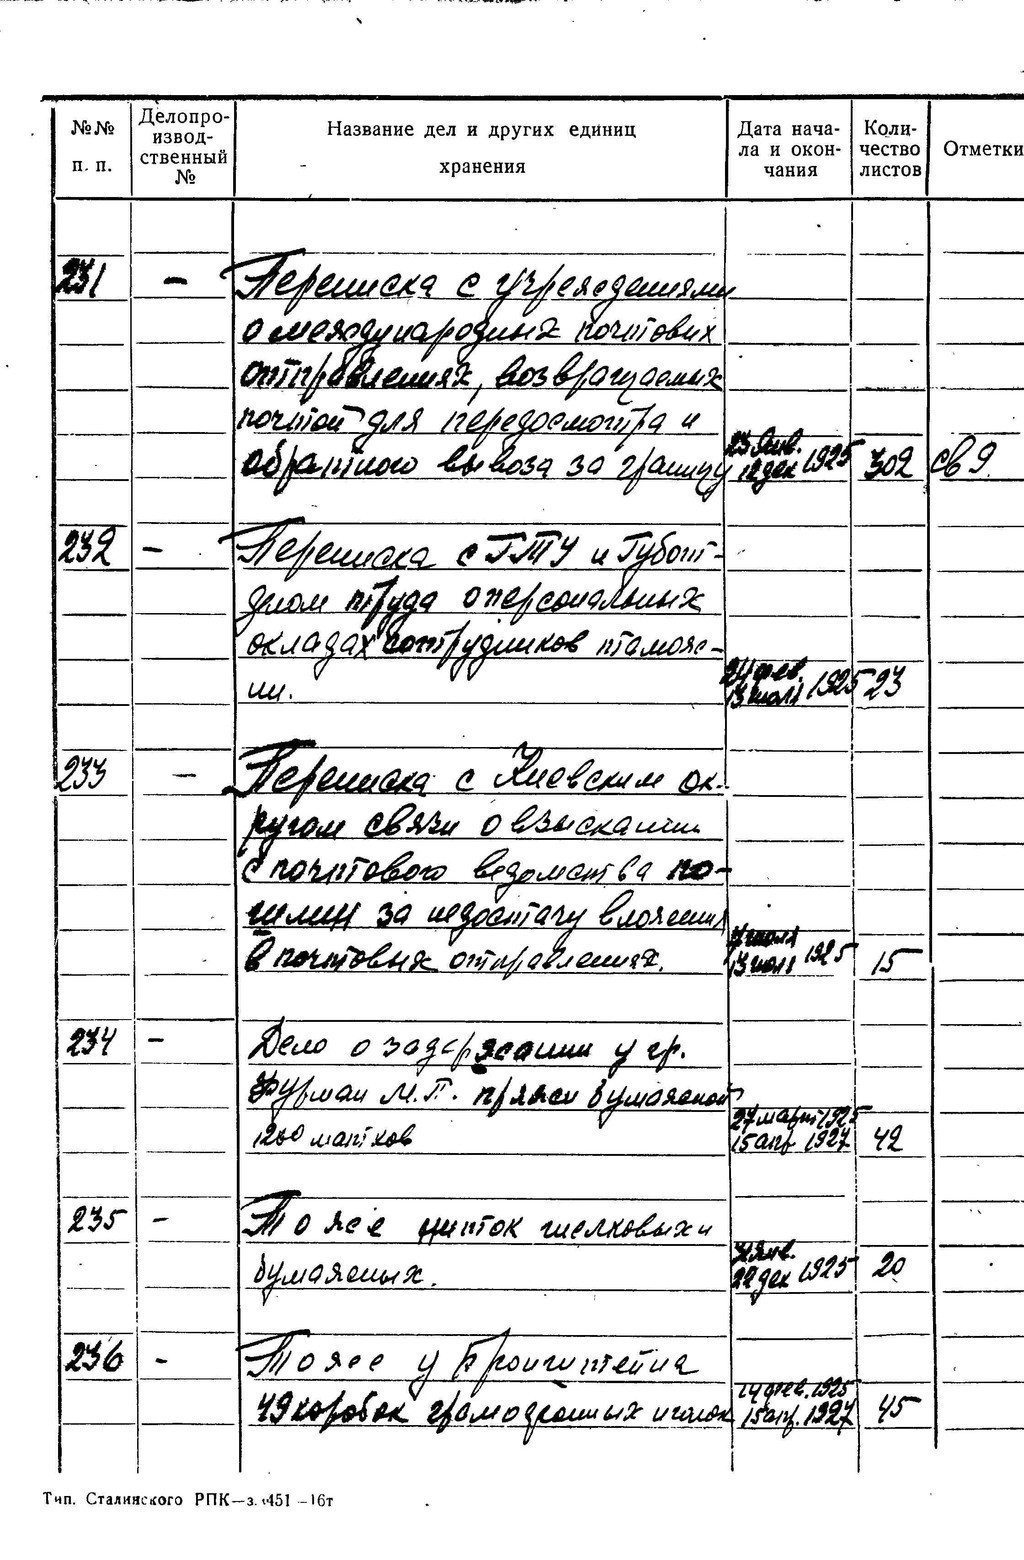 №№ п. п.
Делопроизводственный №
Название дел и других единиц хранения
Дата начала и окончания
Количество листов
Отметки
231 – Переписка с учреждениями
о международных почтовых
отправлениях, возвращаемых
почтой для передосмотра и
обратного вывоза за границу 23 янв. 12 дек 1925 302 св 9.
232 – Переписка с ГТУ и Губот-
делом труда о персональных
окладах сотрудников таможс-
ни. 24 фев. 13 июля 1925 23
233 – Переписка с Киевским ок-
ругом связи о взыскании
с почтового ведомства по-
шлин за недостачу вложения
в почтовых отправлениях. июля 13 июля 1925 15
234 – Дело о задержании у гр.
Фурман М.П. пряжи бумажной
1200 мотков 27 март 1925 15 апр 1927 42
235 – То же ниток шелковых и
бумажных. янв. 22 дек 1925 20
236 – То же у Бронштейна
49 коробок грамофонных иголок 14 фев. 1925 15 апр. 1927 45
Тип. Сталинского РПК—з. 451 —16т